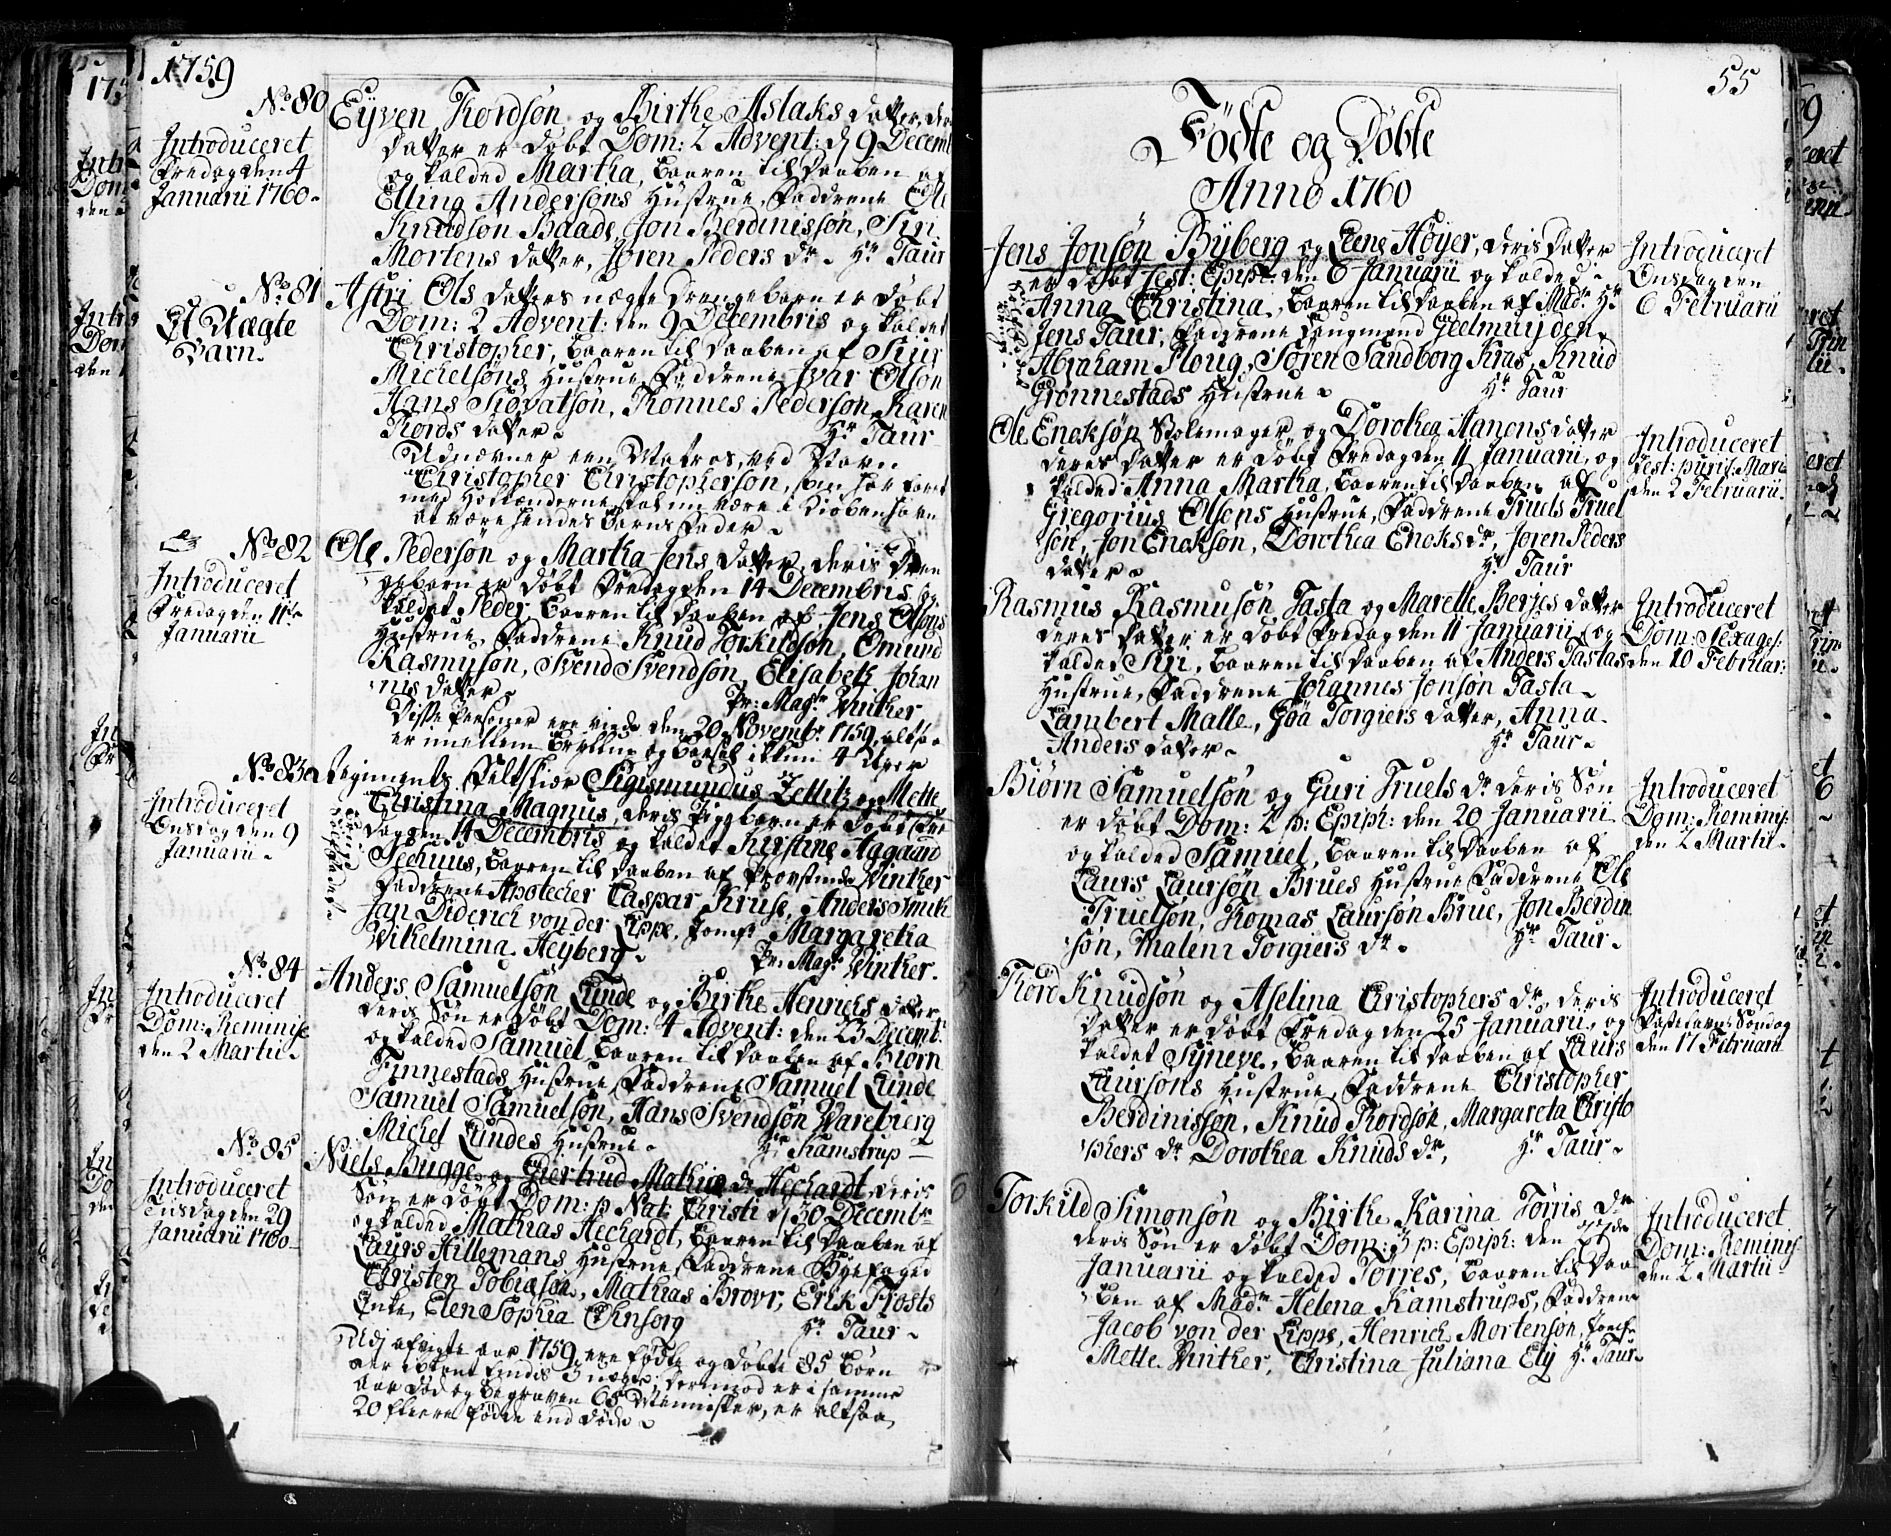 1759
No. 80
Introduceret
Fredag den 4
Januarii 1760.
Eyven Thordsøn og Birthe Aslaks datter, der
datter er døbt Dom: 2 Advent: d 9 Decemb
og kalded Martha, baaren til daaben af
Elling Andersøns Hustrue, Faddrene Ole
Knudsøn Baade, Jon Berdinissøn, Siri
Mortens datter, Jøren Peders dr. Hr Taur
No. 81
Et Uægte
Barn.
Astri Ols datters uægte drengebarn er døbt
Dom: 2 Advent: den 9 Decembris og kaldet
Christopher, baaren til daaben af Siur
Michelsøns Hustrue, Faddrene Ivar Olsøn
Hans Siovatsøn, Rønnes Pedersøn, Karen
Thords datter.
Hr. Taur
Udnævner een Matros, ved Navn
Christopher Christophersøn, som har faret
med Hollænderne, skal nu være i Kiøbenhavn
at være hendes Barns Fader.
No. 82
Introduceret
Fredag den 11te
Januarii
Ole Pedersøn og Martha Jens datter, deris dren
gebarn er døbt Fredag den 14 Decembris, og
kaldet Peder, baaren til daaben af Jens Olsøns
Hustrue, Faddrene Knud Torkildsøn, Omund
Rasmusøn, Svend Svendsøn, Elisabeth Johan
nis datter.
Pr: Magr Winther
Disse Personer ere viede den 20 Novembr. 1759, altsaa
er imellem Bryllup og Barsel ikkun 4 Uger
No. 83
Introduceret
Onsdag den 9
Januarii.
Regiments Feltskiær Sigismundus Zellitz og Mette
Christina Magnus, deris Pigebarn er døbt Fre
dag den 14 Decembris og kaldet Kirstine Aagaard
Sechuus, baaren til daaben af Provstinde Winther
Faddrene Apotecher Caspar Kruse, Anders Smith
Jan Diderich von der Lippe, Jomfr Margaretha
Wilhelmina Heyberg.
Pr: Magr Winther.
No. 84
Introduceret
Dom: Reminisc
den 2 Martii.
Anders Samuelsøn Lunde og Birthe Henrichs datter
deris Søn er døbt Dom: 4 Advent: den 23 Decemb:
og kalded Samuel, baaren til daaben af Biørn
Finnestads Hustrue, Faddrene Samuel Lunde
Samuel Samuelsøn, Hans Svendsøn Wareberg
Michel Lundes Hustrue.
Hr. Kamstrup
No. 85
Introduceret
Tiisdag den 29
Januarii 1760
Niels Bugge og Giertrud Mathia d. Hechardt, deris
Søn er døbt Dom: p. Nat: Christi d 30 Decembr
og kalded Mathias Hechardt, baaren til daaben af
Laurs Hillemans Hustrue, Faddrene Byefoged
Christen Tobiæsøn, Mathias Brovr, Erik Frosts
Enke, Elen Sophia Ehnsorg
Hr. Taur.
Udj afvigte aar 1759 ere fødte og døbte 85 Børn
aar død og begraven 65 Mennisker, er altsaa
20 fleere fødte end døde.
55
Fødte og Døbte
Anno 1760
Jens Jonsøn Byberg og Lene Høyer, deris datter
er døbt Fest: Epiph: den 6 Januarii og kalded
Anna Christina, baaren til daaben af Madm Hr
Jens Taur, Faddrene Laugmand Geelmuyden
Abraham Ploug, Søren Sandborg Kras, Knud
Grønnestads Hustrue.
Hr Taur
Introduceret
Onsdag den
6 Februarii
Ole Enoksøn Stolemager og Dorothea Aanens datter
deres datter er døbt Fredag den 11 Januarii, og
kalded Anna Martha, baaren til daaben af
Gregorius Olsøns Hustrue, Faddrene Truels Truel
søn, Jon Enoksøn, Dorothea Enoks dr, Jøren Peders
datter.
Hr Taur
Introduceret
Fest: purif: Mari
den 2 Februarii.
Rasmus Rasmusøn Tasta og Marelle Berjes datter
deres datter er døbt Fredag den 11 Januarii, og
kalded Siri, baaren til daaben af Anders Tastas
Hustrue, Faddrene Johannes Jonsøn Tasta
Lambert Malle, Goa Torgiers datter, Anna
Anders datter.
Hr Taur.
Introduceret
Dom: Sexages:
den 10 Februar:
Biørn Samuelsøn og Guri Truels dr deris Søn
er døbt Dom: 2 p: Epiph: den 20 Januarii
og kalded Samuel, baaren til daaben af
Laurs Laursøn Brues Hustrue, Faddrene Ole
Truelsøn, Thomas Laursøn Brue, Jon Berdin
søn, Maleni Torgiers dr.
Hr Taur.
Introduceret
Dom: Reminis:
den 2 Martii.
Thord Knudsøn og Aselina Christophers dr, deris
datter er døbt Fredag den 25 Januarii, og
kaldet Syneve, baaren til daaben af Laurs
Laursøns Hustrue, Faddrene Christopher
Berdinissøn, Knud Thordsøn, Margareta Christo
phers dr. Dorothea Knuds dr,
Hr Taur.
Introduceret
Fastelavns Søndag
den 17 Februarii
Torkild Simonsøn og Birthe Karina Torris dr
deris Søn er døbt Dom: 3 p: Epiph: den 27de
Januarii og kalded Torres, baaren til daa
ben af Madm Helena Kamstrups, Faddrene
Jacob von der Lippe, Henrich Mortensøn, Jomfr
Mette Winther, Christina Juliana Ely Hr Taur.
Introduceret
Dom: Reminis
den 2 Martii